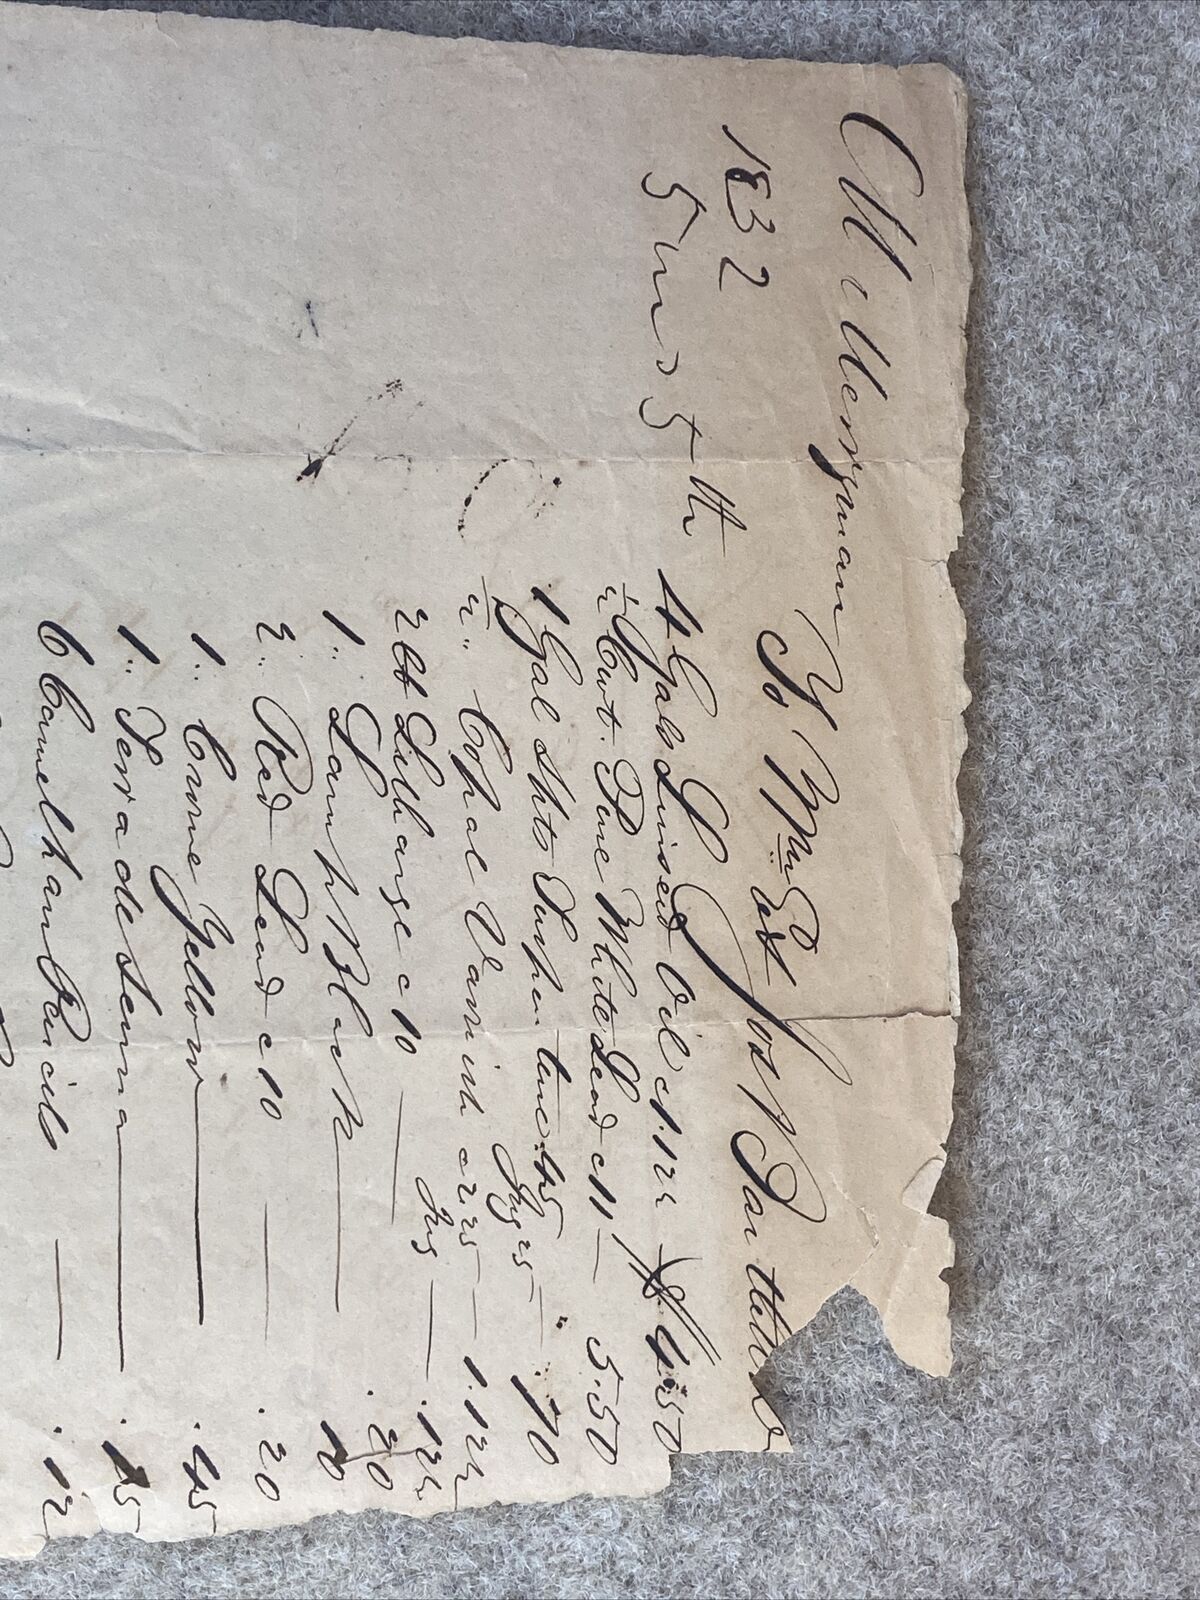 M Merryman
To Wm & Jos P. Part
1832
June 5th
4 Gals Linseed Oil c 1.12½ $4.50
½ Cwt. Pure White Lead c 11 — 5.50
1 Gal Spts Turpentine .45 Jug 25 — .70
½ " Copal Varnish c 2.25 — 1.12½
Jug — .12½
2 lb Litharge c 10 — .20
1 " Lamp Black — 10
2 " Red Lead c 10 — .20
1 " Crome Yellow — .45
1 " Terra de Senna — .15
6 Camel hair Pencils — .12